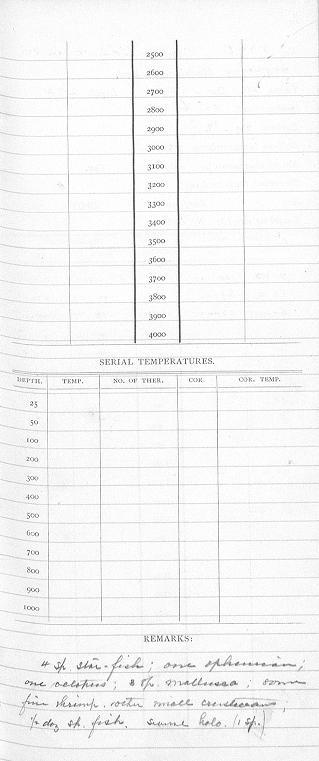 2500
2600
2700
2800
2900
3000
3100
3200
3300
3400
3500
3600
3700
3800
3900
4000
SERIAL TEMPERATURES.
DEPTH. TEMP. NO. OF THER. COR. COR. TEMP.
25
50
100
200
300
400
500
600
700
800
900
1000
REMARKS:
4 sp. star-fish; one ophiurian;
one octopus; 3 sp. mollusca; some
fine shrimp. other small crustaceans;
1/2 doz sp. fish. some holo. (1 sp.)